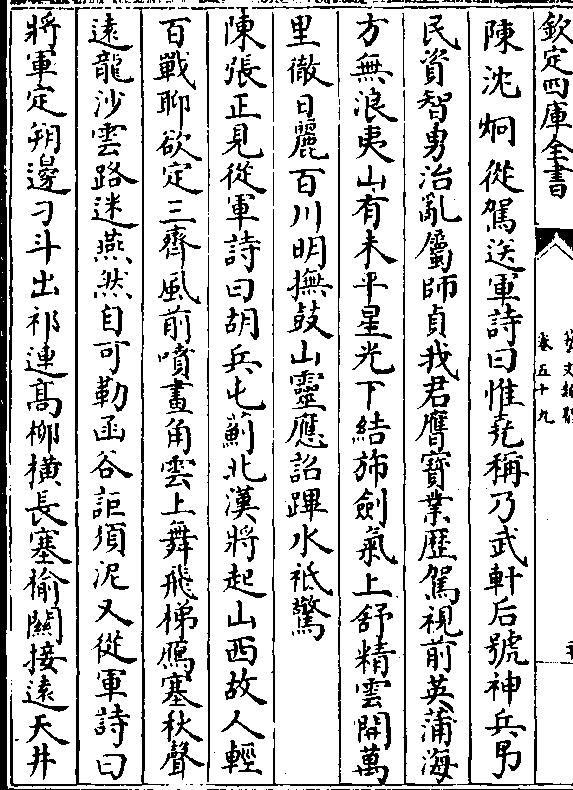 欽定四庫全書
藝文類聚
卷五十九
陳沈炯從駕送軍詩曰惟堯稱乃武軒后號神兵弔
民資智勇治亂屬師貞我君膺寶業歷駕視前英蒲海
方無浪夷山有未平星光下結斾劍氣上舒精雲開萬
里徹日麗百川明撫鼓山靈應詔蹕水祗驚
陳張正見從軍詩曰胡兵屯薊北漢將起山西故人輕
百戰聊欲定三齊風前噴畫角雲上舞飛梯鴈塞秋聲
遠龍沙雲路迷燕然自可勒函谷詎須泥又從軍詩曰
將軍定朔邊刁斗出祁連髙栁橫長塞榆關接遠天井